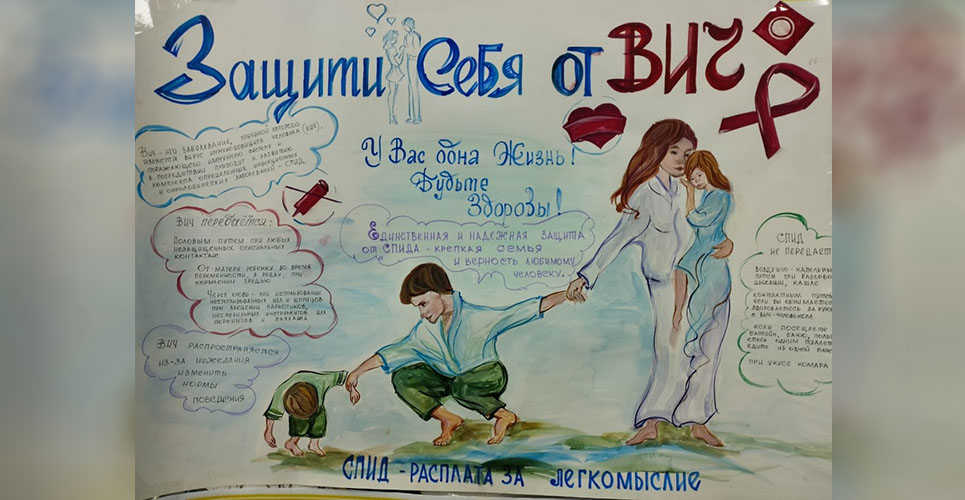 Защити Себя от ВИЧ
ВИЧ - это заболевание, причиной которого
является вирус иммунодефицита человека (ВИЧ),
поражающего иммунную систему и
в последствии приводит к развитию
комплекса определенных инфекционных
и онкологических заболеваний - СПИД
У Вас одна Жизнь!
Будьте
Здоровы!
Единственная и надежная защита
от СПИДА - крепкая семья
и верность любимому
человеку.
ВИЧ передаётся:
Половым путем при любых
незащищенных сексуальных
контактах.
От матери ребенку во время
беременности, в родах, при
кормлении грудью
Через кровь - при использовании
нестерилизованных игл и шприцов
при введении наркотиков,
нестерильных инструментов для
пирсинга и
ВИЧ распространяется
из-за нежелания
изменить
нормы
поведения
СПИД
не передает
воздушно - капельны
путем при разгово
дыхании, кашле
контактным путем
если вы обнимаетес
здороваетесь за руку
с ВИЧ-человеком
если посещаете
бассейн, баню, поль
етесь одним туалет
едите из одной таре
при укусе комара
СПИД - РАСПЛАТА ЗА ЛЕГКОМЫСЛИЕ